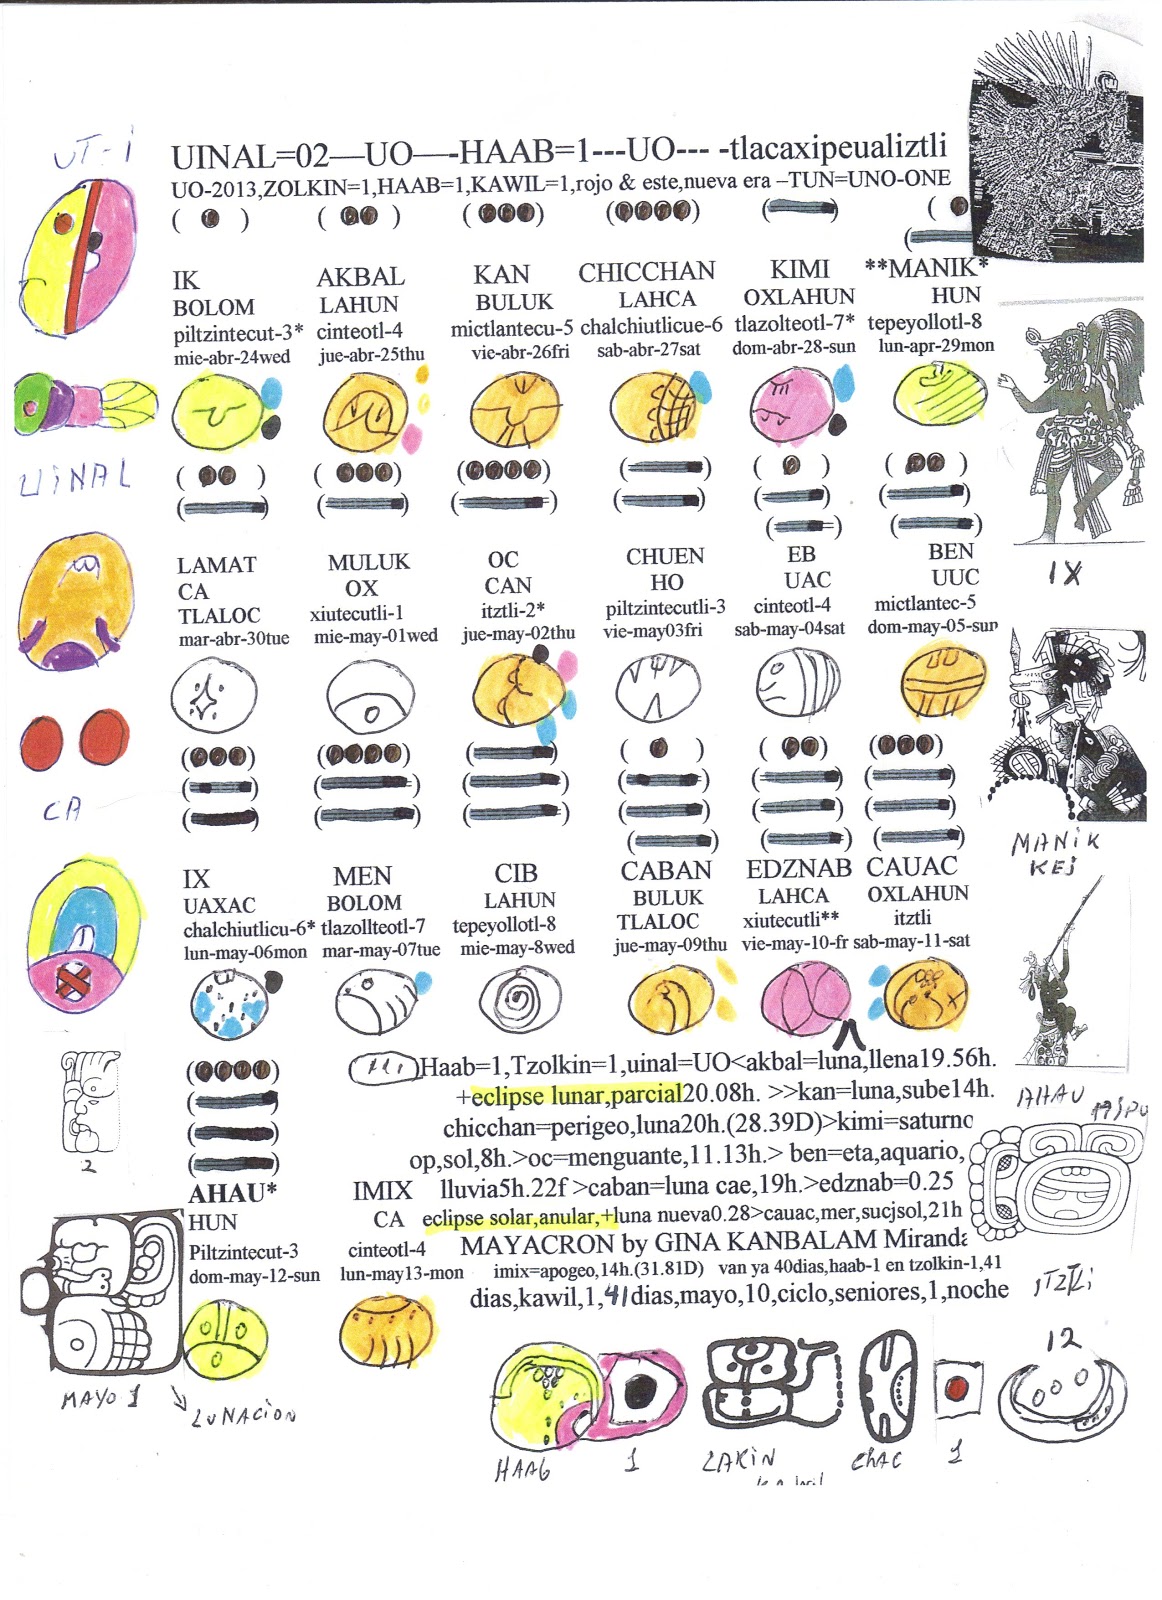 UT-i
UINAL=02—UO—-HAAB=1---UO--- -tlacaxipeualiztli
UO-2013,ZOLKIN=1,HAAB=1,KAWIL=1,rojo & este,nueva era –TUN=UNO-ONE
IK AKBAL KAN CHICCHAN KIMI **MANIK*
BOLOM LAHUN BULUK LAHCA OXLAHUN HUN
piltzintecut-3* cinteotl-4 mictlantecu-5 chalchiutlicue-6 tlazolteotl-7* tepeyollotl-8
mie-abr-24wed jue-abr-25thu vie-abr-26fri sab-abr-27sat dom-abr-28-sun lun-apr-29mon
UINAL
LAMAT MULUK OC CHUEN EB BEN
CA OX CAN HO UAC UUC
TLALOC xiutecutli-1 itztli-2* piltzintecutli-3 cinteotl-4 mictlantec-5
mar-abr-30tue mie-may-01wed jue-may-02thu vie-may03fri sab-may-04sat dom-may-05-sun
IX
CA
MANIK
KEJ
IX MEN CIB CABAN EDZNAB CAUAC
UAXAC BOLOM LAHUN BULUK LAHCA OXLAHUN
chalchiutlicu-6* tlazollteotl-7 tepeyollotl-8 TLALOC xiutecutli** itztli
lun-may-06mon mar-may-07tue mie-may-8wed jue-may-09thu vie-may-10-fr sab-may-11-sat
Haab=1,Tzolkin=1,uinal=UO<akbal=luna,llena19.56h.
+eclipse lunar,parcial20.08h. >>kan=luna,sube14h.
chicchan=perigeo,luna20h.(28.39D)>kimi=saturno
op,sol,8h.>oc=menguante,11.13h.> ben=eta,aquario,
lluvia5h.22f >caban=luna cae,19h.>edznab=0.25
eclipse solar,anular,+luna nueva0.28>cauac,mer,sucjsol,21h
MAYACRON by GINA KANBALAM Miranda
imix=apogeo,14h.(31.81D) van ya 40dias,haab-1 en tzolkin-1,41
dias,kawil,1,41dias,mayo,10,ciclo,seniores,1,noche
2
AHAU* IMIX
HUN CA
Piltzintecut-3 cinteotl-4
dom-may-12-sun lun-may13-mon
AHAU
ITZTLI
12
MAYO 1
LUNACION
HAAB 1 LAKIN CHAC 1